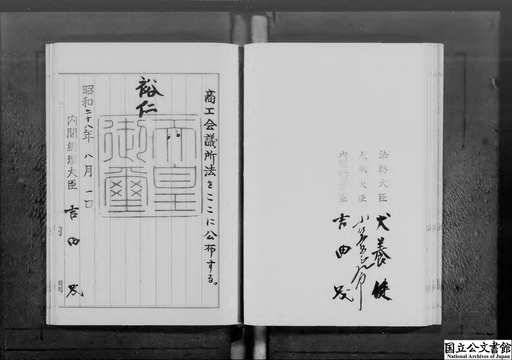 商工会議所法をここに公布する。
裕仁
天皇御璽
昭和二十八年八月一日
内閣総理大臣 吉田茂
法務大臣 犬養健
大蔵大臣
内閣総理大臣 吉田茂
国立公文書館
National Archives of Japan